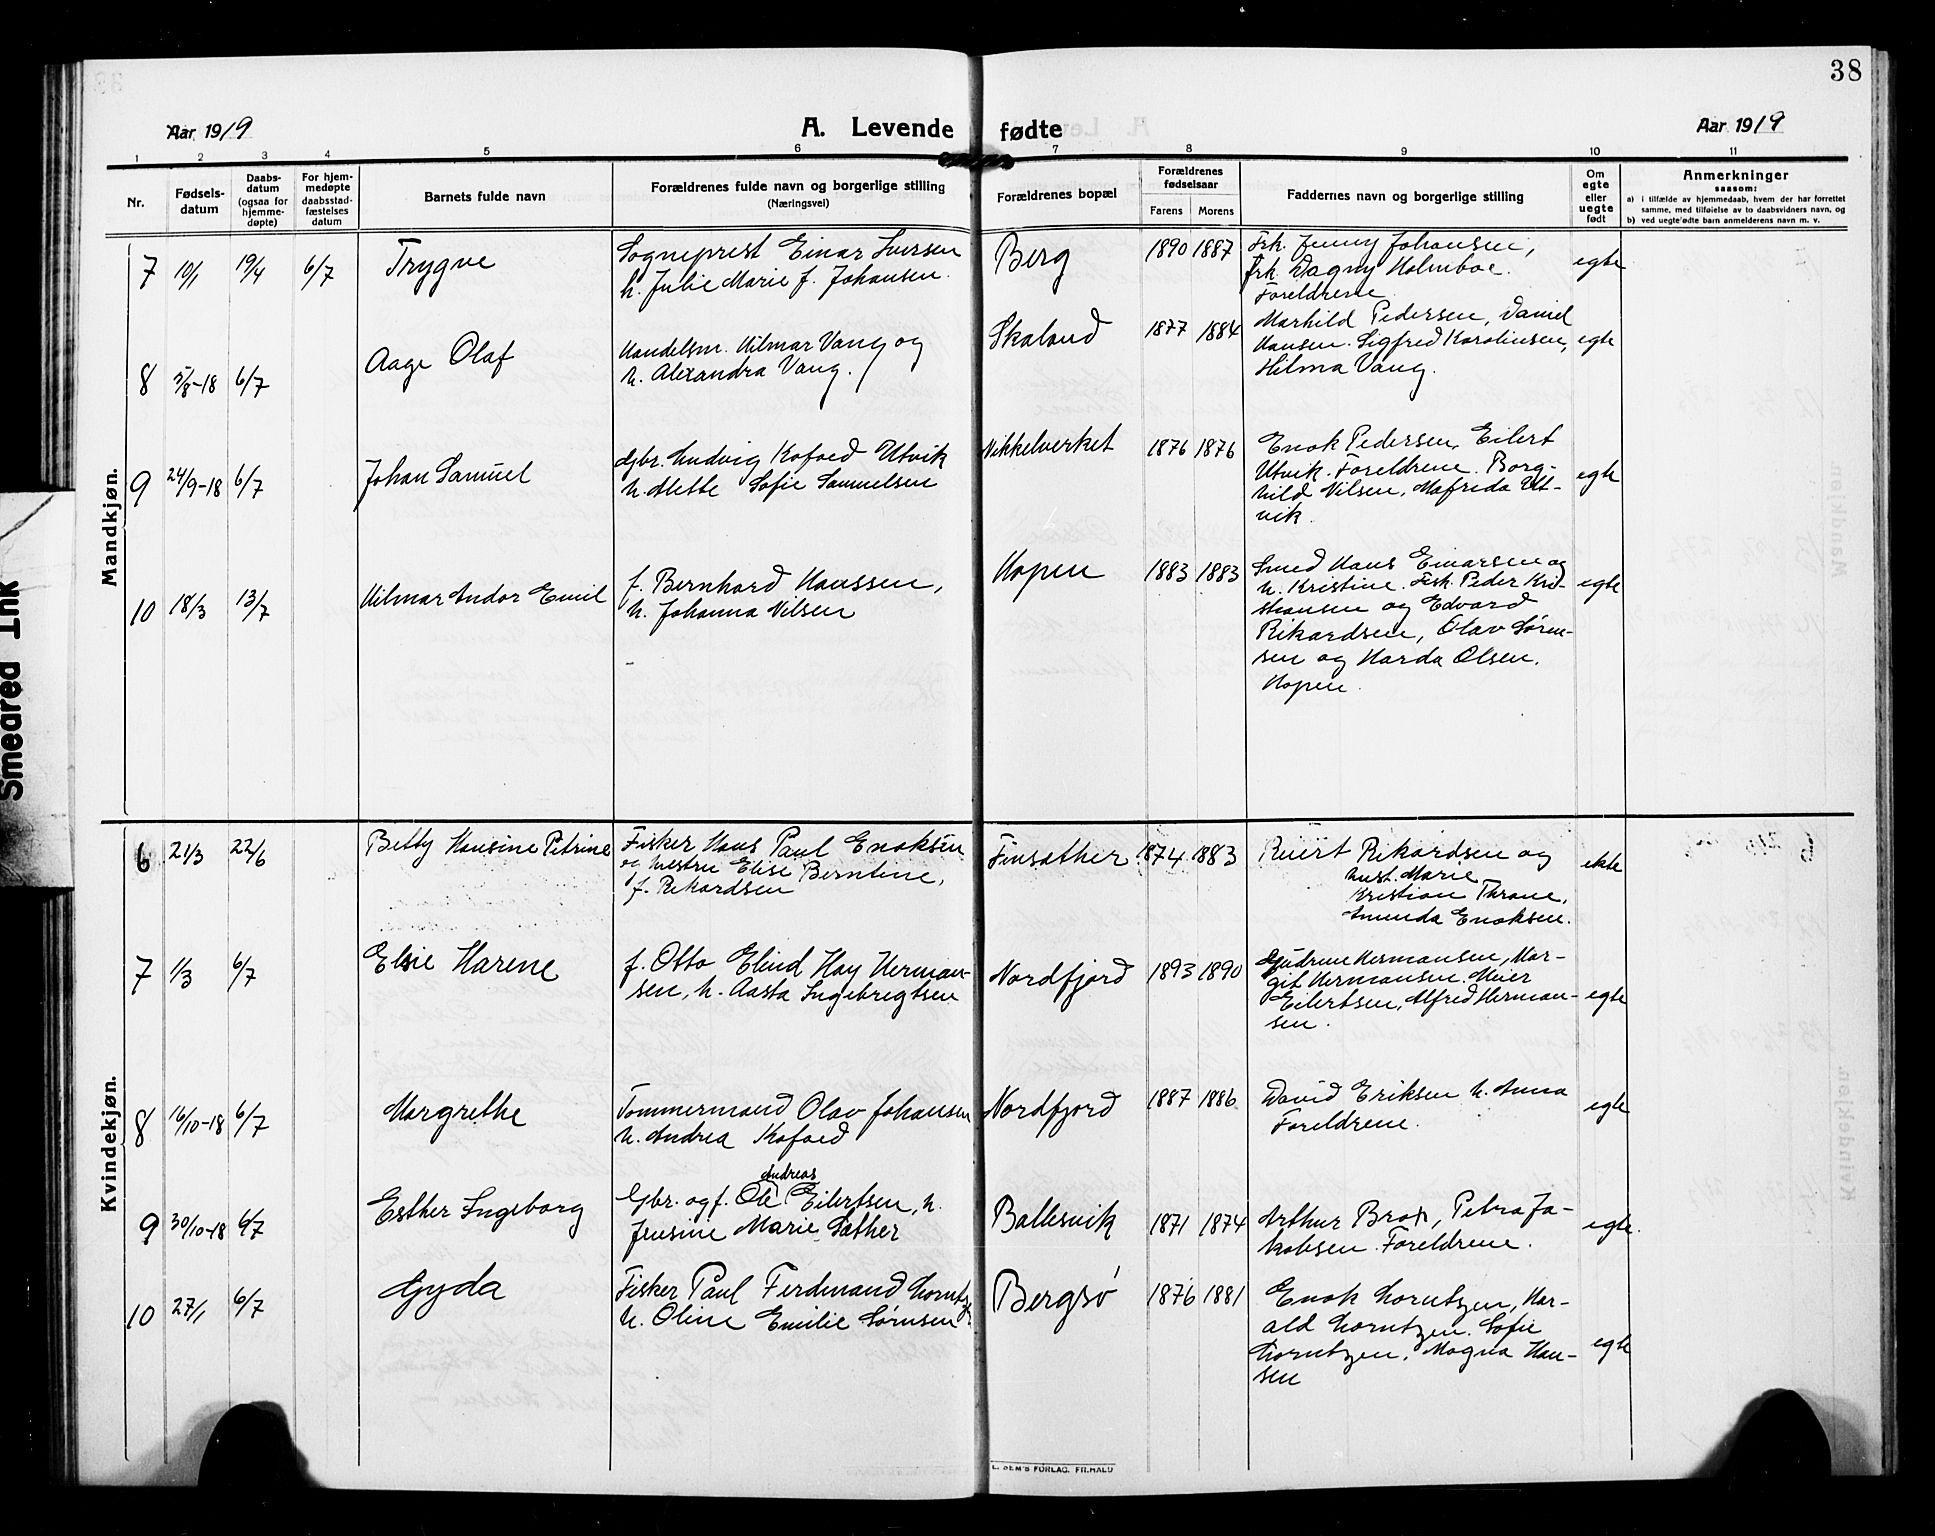 38
Aar 1919
A. Levende fødte
Aar 1919
1 2 3 4 5 6 7 8 9 10 11
Nr.
Fødsels-
datum
Daabs-
datum
(ogsaa for
hjemme-
døpte)
For hjem-
medøpte
daabsstad-
fæstelses
datum
Barnets fulde navn
Forældrenes fulde navn og borgerlige stilling
(Næringsvei)
Forældrenes bopæl
Forældrenes
fødselsaar
Farens Morens
Faddernes navn og borgerlige stilling
Om
egte
eller
uegte
født
Anmerkninger
saasom:
a) i tilfælde av hjemmedaab, hvem der har forrettet
samme, med tilføielse av to daabsvidners navn, og
b) ved uegte fødte barn anmelderens navn m. v.
Mandkjøn.
7 10/1 19/4 6/7 Trygve
Sogneprest Einar Iversen
h. Julie Marie f. Johansen.
Berg 1890 1887
Frk. Jenny Johansen,
frk. Dagny Holmboe.
Foreldrene
egte
8 5/8-18 6/7 Aage Olaf
Handelsm. Hilmar Vang og
h. Alexandra Vang.
Skaland 1877 1884
Marhild Pedersen, Daniel
Hansen. Sigfred Karolinsen,
Hilma Vang.
egte
9 24/9-18 6/7 Johan Samuel
Gbr. Ludvig Kofoed Utvik
h. Alette Sofie Samuelsen
Nikkelverket 1876 1876
Enok Pedersen, Eilert
Utvik. Foreldrene. Borg-
hild Nilsen, Mafrida Ut-
vik.
egte
10 18/3 13/7 Hilmar Andor Emil
f. Bernhard Hanssen,
h. Johanna Nilsen
Hopen 1883 1883
Smed Hans Einarsen og
h. Kristine. Fisk. Peder Kri-
stiansen og Edvard
Rikardsen, Olav Søren-
sen og Harda Olsen.
Hopen.
egte
Kvindekjøn.
6 21/3 22/6 Betty Hansine Petrine
Fisker Hans Paul Enoksen
og hustru Elise Berntine,
f. Rikardsen
Finsæther 1874 1883
Reiert Rikardsen og
hust. Marie
Kristian Thrane,
Amunda Enoksen.
ekte
7 1/3 6/7 Elsie Harene
f. Otto Elind Hay Herman-
sen, h. Aasta Ingebregtsen
Nordfjord 1893 1890
Gudrun Hermansen, Mar-
git Hermansen. Meier
Eilertsen, Alfred Herman-
sen.
egte
8 16/10-18 6/7 Margrethe
Tømmermand Olav Johansen
h. Andrea Kofoed
Nordfjord 1887 1886
David Eriksen h. Anna
Foreldrene.
egte
9 30/10-18 6/7 Esther Ingeborg
Gbr. og f. Ole Andreas Eilertsen, h.
Jensine Marie Sæther
Ballesvik 1871 1874
Arthur Brox, Petra Ja-
kobsen. Foreldrene.
egte.
10 27/1 6/7 Gyda
Fisker Paul Ferdinand Lorntzen
h. Oline Emilie Sørnsen
Bergsø 1876 1881
Enok Lorntzen, Har-
ald Lorntzen. Sofie
Lorntzen, Magna Han-
sen
egte
FORLAG. FR.HALD
Smeared Ink